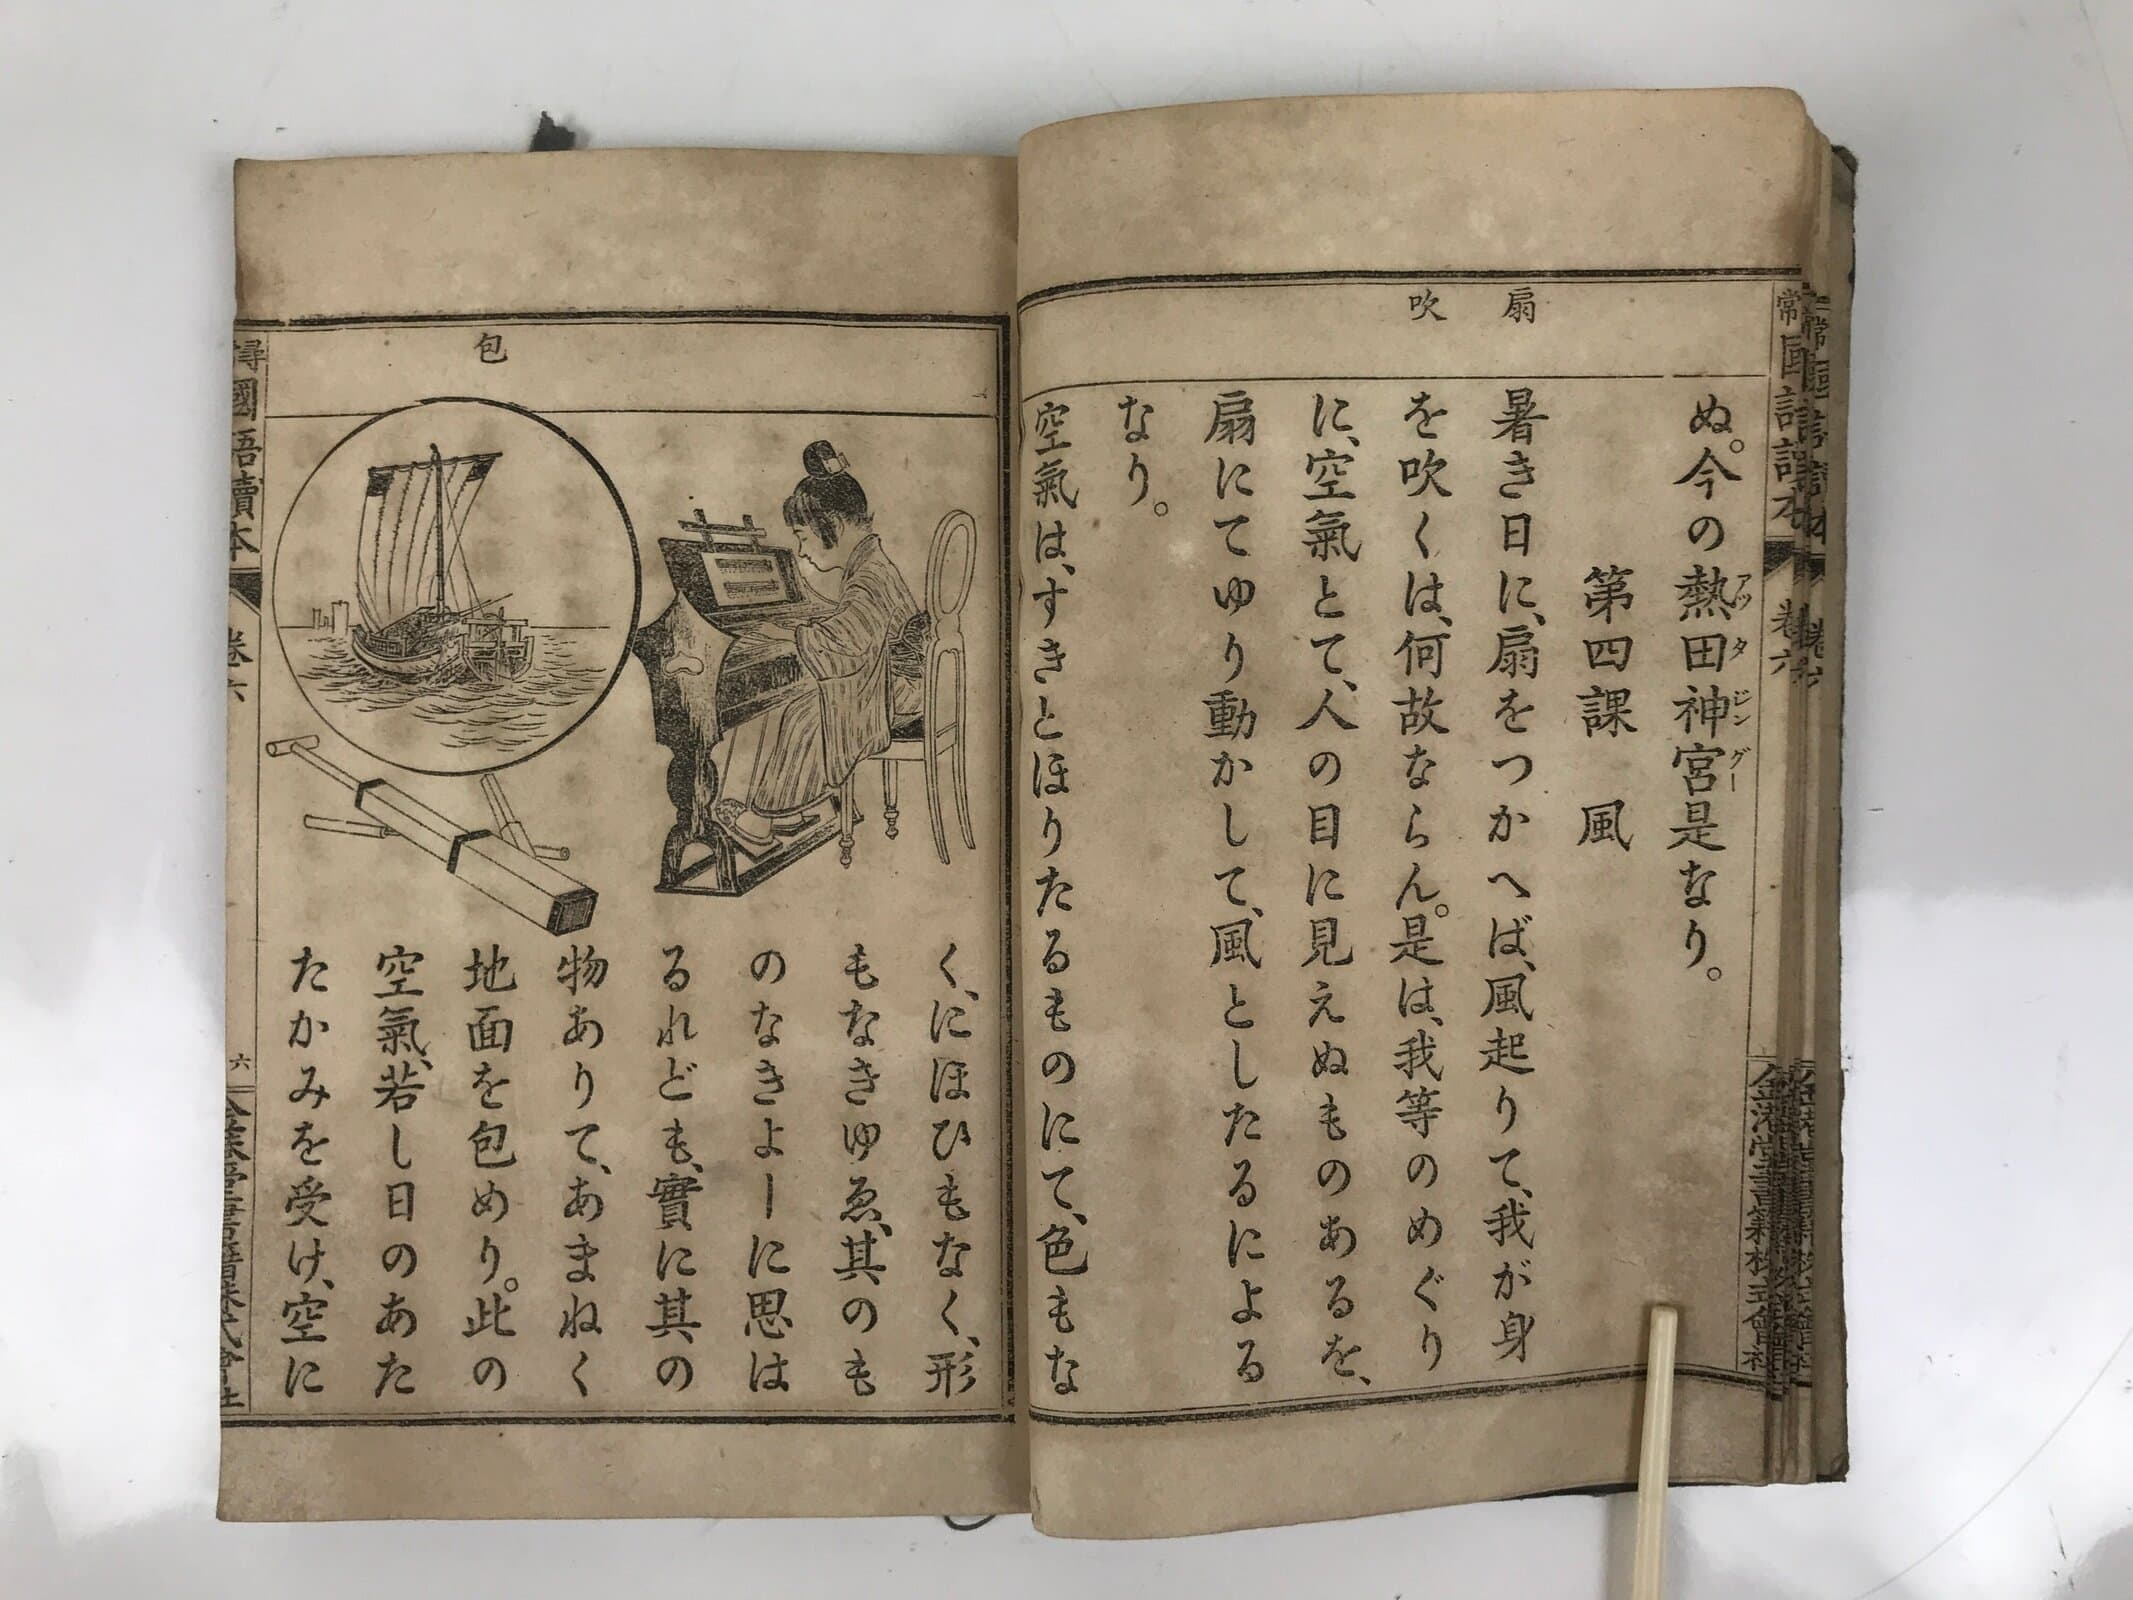 扇
吹
ぬ。今の熱田神宮是なり。
アツタジングー
第四課 風
暑き日に、扇をつかへば、風起りて、我が身
を吹くは、何故ならん。是は、我等のめぐり
に、空氣とて、人の目に見えぬものあるを、
扇にてゆり動かして、風としたるによる
なり。
空氣は、すきとほりたるものにて、色もな
包
く、にほひもなく、形
もなきゆゑ、其のも
のなきよーに思は
るれども、實に其の
物ありて、あまねく
地面を包めり。此の
空氣、若し日のあた
たかみを受け、空に
國語讀本
卷六
六